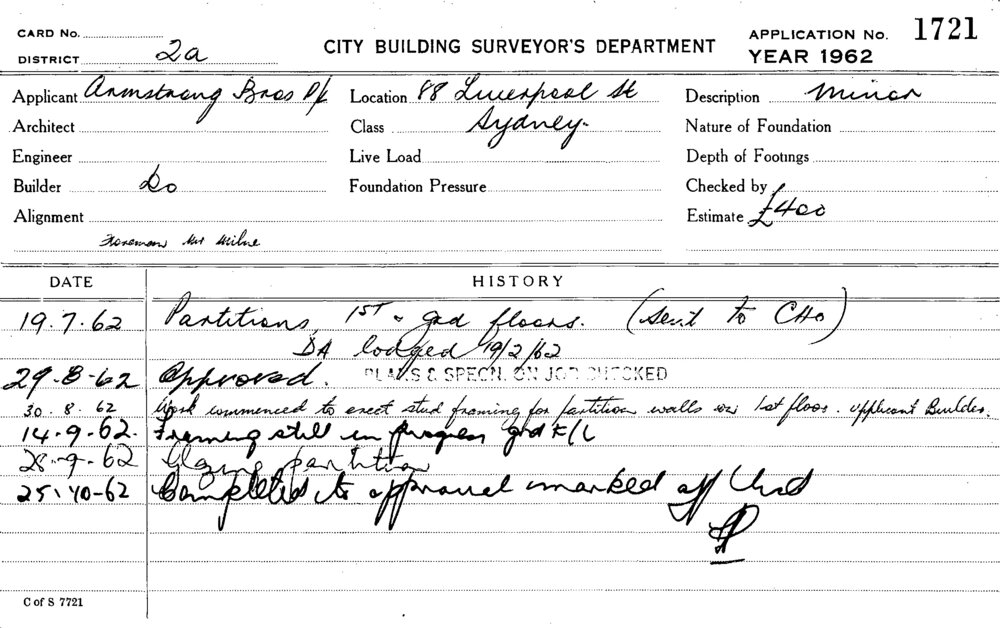 CARD No.
DISTRICT 2a
CITY BUILDING SURVEYOR'S DEPARTMENT
APPLICATION No. 1721
YEAR 1962
Applicant Armstrong Bros P/L Location 88 Liverpool St Description Minor
Architect Class Sydney. Nature of Foundation
Engineer Live Load Depth of Footings
Builder Do Foundation Pressure Checked by
Alignment Estimate £400
Foreman Mr Milne
DATE HISTORY
19.7.62 Partitions, 1ST & grd floors. (Sent to CHO)
DA lodged 19/2/62
29-8-62 Approved. PLANS & SPECN. ON JOB CHECKED
30.8.62 Work commenced to erect stud framing for partition walls on 1st floor. Applicant Builder.
14-9-62. Framing still in progress grd F/L
28-9-62 Glazing partition
25-10-62 Completed to approval marked off
C of S 7721